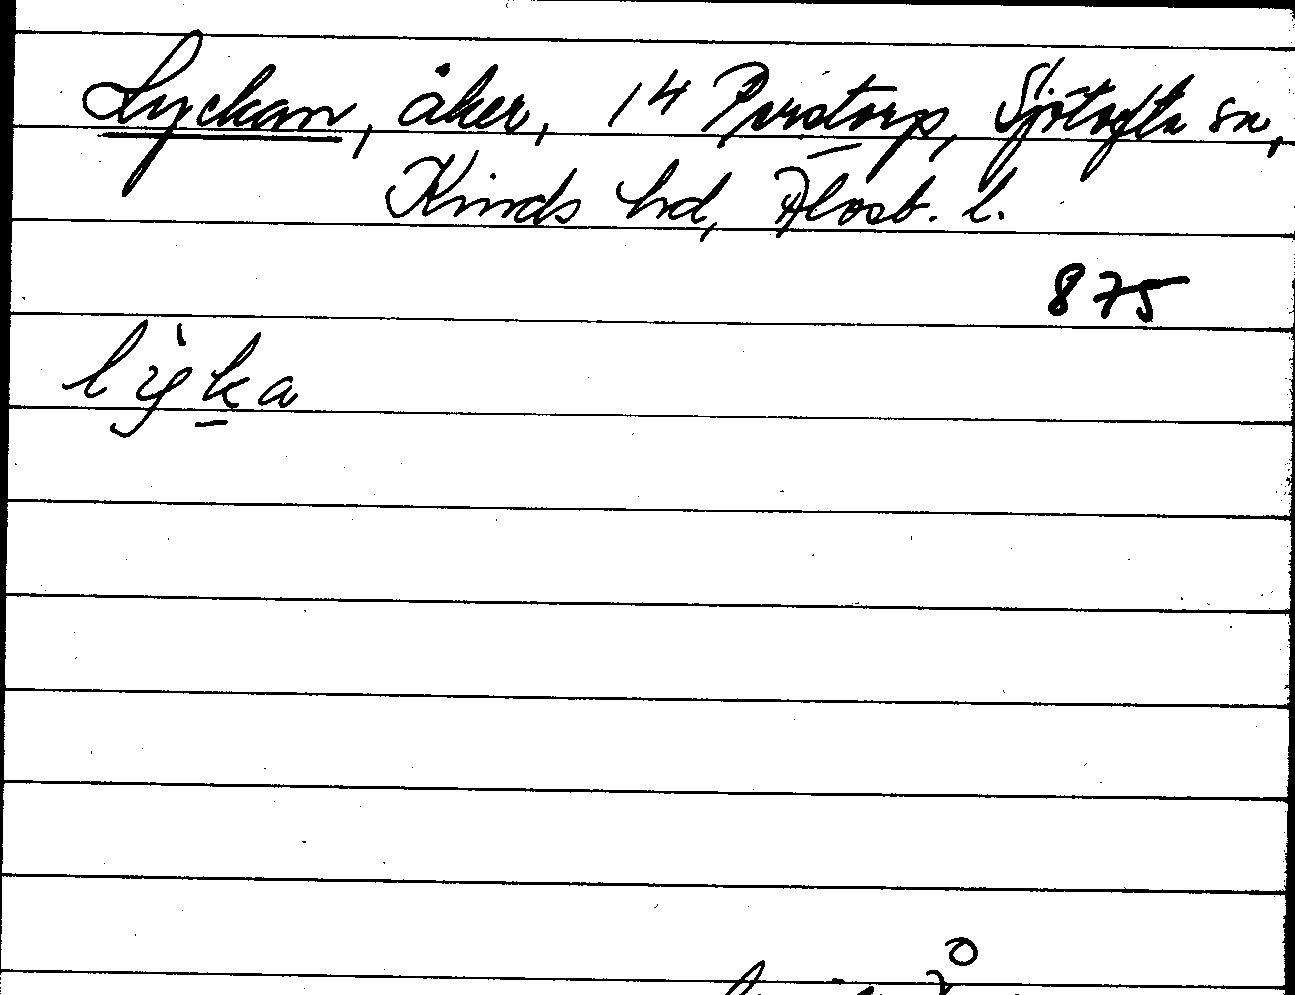 Lyckan, åker, 14 Purstorp, Sjötofta sn,
Kinds hd, Älvsb. l.
875
lỳka